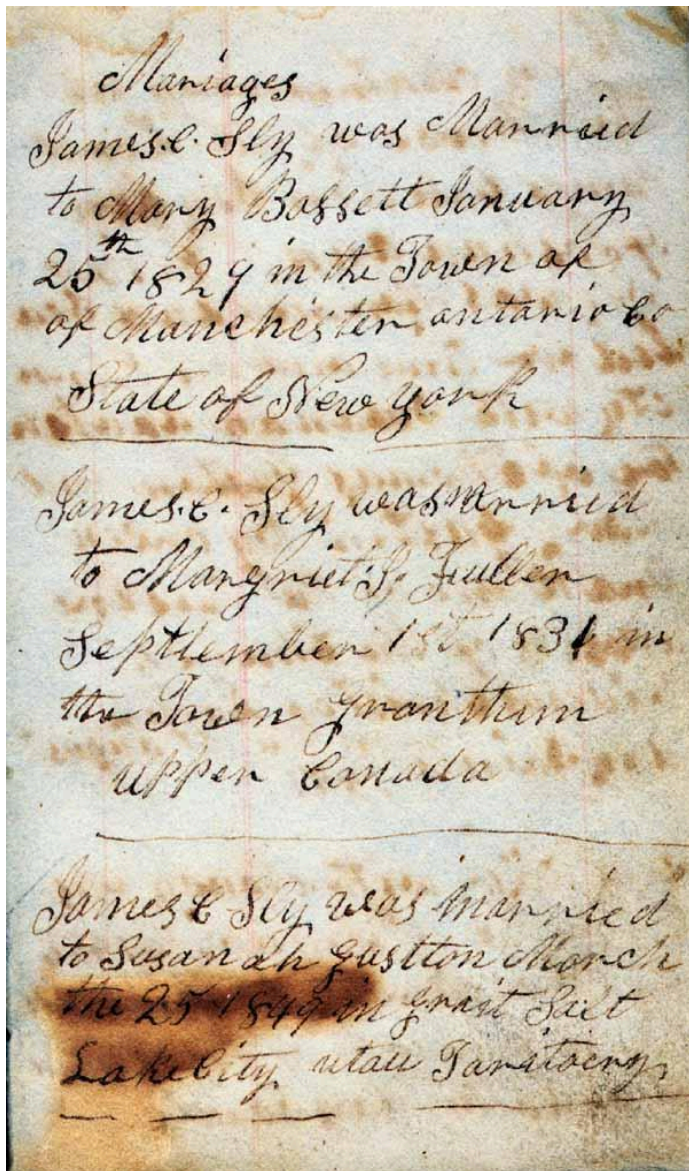 Mariages
James. C. Sly was Married
to Mary Bassett January
25th 1829 in the Town of
of Manchester ontario Co
State of New york
James. C. Sly was Marrried
to Margriet S. Fuller
Septtember 1st 1831 in
the Town granthum
upper Canada
James C Sly was married
to Susanah gustton March
the 25 1849 in grait Salt
Lake City utau Taritoery